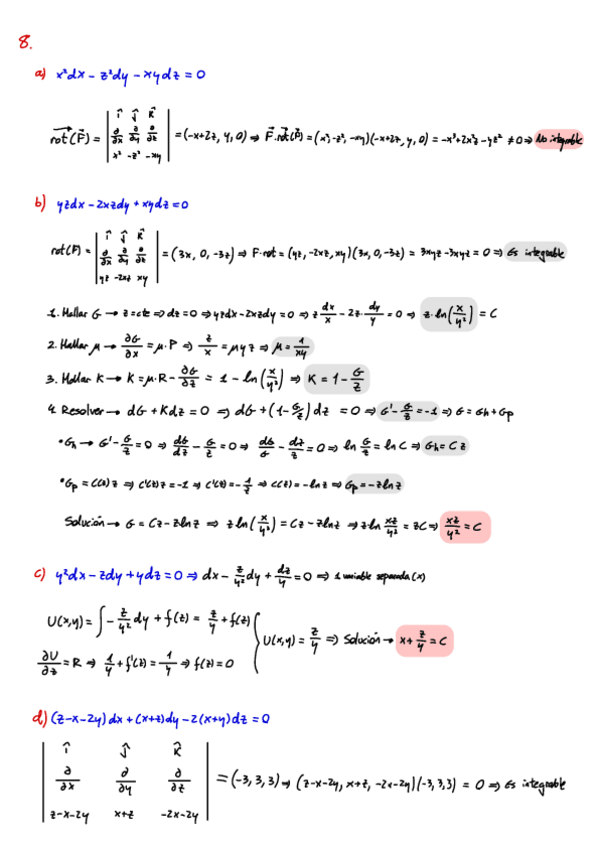 8.
a) x²dx - z²dy - xydz = 0
rot(F⃗) = | î ĵ k̂ ; ∂/∂x ∂/∂y ∂/∂z ; x² -z² -xy | = (-x+2z, y, 0) ⇒ F⃗·rot(F⃗) = (x², -z², -xy)(-x+2z, y, 0) = -x³+2x²z-yz² ≠ 0 ⇒ No integrable
b) yzdx - 2xzdy + xydz = 0
rot(F⃗) = | î ĵ k̂ ; ∂/∂x ∂/∂y ∂/∂z ; yz -2xz xy | = (3x, 0, -3z) ⇒ F·rot = (yz, -2xz, xy)(3x, 0, -3z) = 3xyz - 3xyz = 0 ⇒ Es integrable
1. Hallar G → z = cte ⇒ dz = 0 ⇒ yzdx - 2xzdy = 0 ⇒ z dx/x - 2z · dy/y = 0 ⇒ z·ln(x/y²) = C
2. Hallar μ → ∂G/∂x = μ·P ⇒ z/x = μyz ⇒ μ = 1/xy
3. Hallar K → K = μ·R - ∂G/∂z = 1 - ln(x/y²) ⇒ K = 1 - G/z
4. Resolver → dG + Kdz = 0 ⇒ dG + (1 - G/z) dz = 0 ⇒ G' - G/z = -1 ⇒ G = Gh + Gp
• Gh → G' - G/z = 0 ⇒ dG/dz - G/z = 0 ⇒ dG/G - dz/z = 0 ⇒ ln G/z = ln C ⇒ Gh = Cz
• Gp = C(z) z ⇒ C'(z) z = -1 ⇒ C'(z) = -1/z ⇒ C(z) = -ln z ⇒ Gp = -z ln z
Solución → G = Cz - z ln z ⇒ z ln(x/y²) = Cz - z ln z ⇒ z ln xz/y² = zC ⇒ xz/y² = C
c) y²dx - zdy + ydz = 0 ⇒ dx - z/y² dy + dz/y = 0 ⇒ 1 variable separada (x)
U(x,y) = ∫ - z/y² dy + f(z) = z/y + f(z)
∂U/∂z = R ⇒ 1/y + f'(z) = 1/y ⇒ f(z) = 0
U(x,y) = z/y ⇒ Solución → x + z/y = C
d) (z-x-2y)dx + (x+z)dy - 2(x+y)dz = 0
| î ĵ k̂
∂/∂x ∂/∂y ∂/∂z
z-x-2y x+z -2x-2y | = (-3, 3, 3) ⇒ (z-x-2y, x+z, -2x-2y)(-3, 3, 3) = 0 ⇒ Es integrable